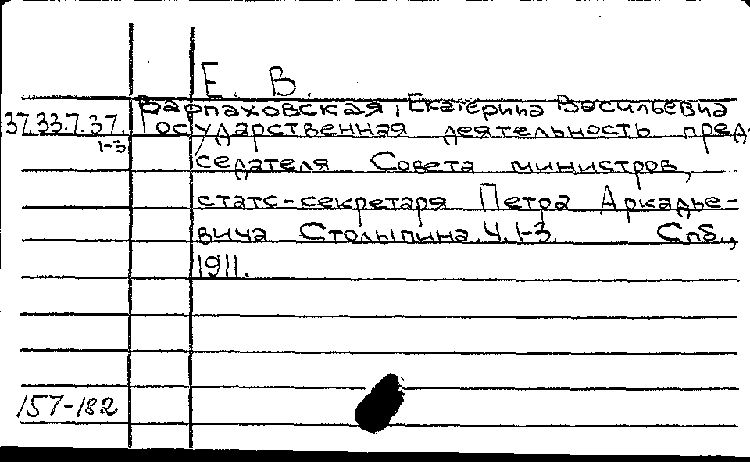 Е. В.
Варпаховская, Екатерина Васильевна
37.33.7.37. Государственная деятельность пред-
1-3
седателя Совета министров,
статс-секретаря Петра Аркадье-
вича Столыпина. Ч. 1-3. Спб.,
1911.
157-182